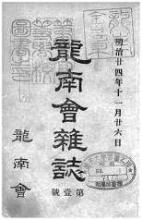 明治廿四年十一月廿六日
龍南會雜誌
第壹號
龍南會